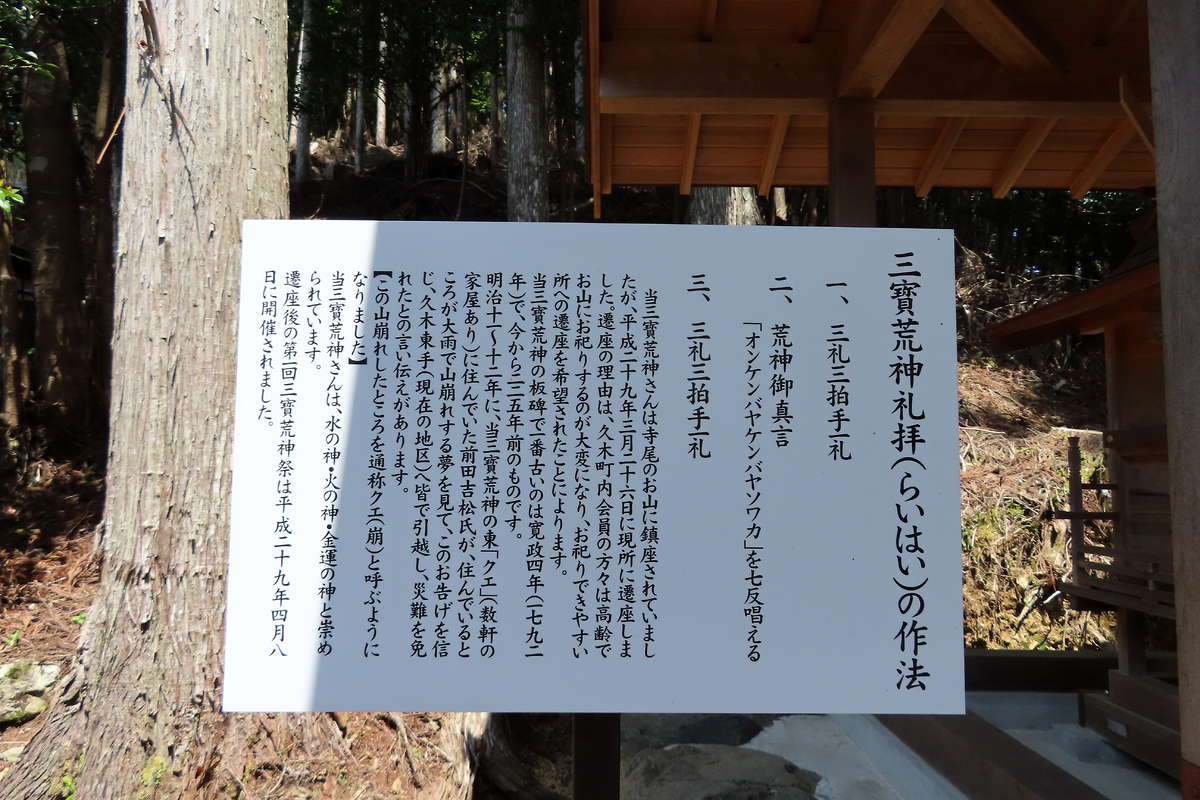 三寶荒神礼拝(らいはい)の作法
一、 三礼三拍手一礼
二、 荒神御真言
「オンケンバヤケンバヤソワカ」を七反唱える
三、 三礼三拍手一礼
当三寶荒神さんは寺尾のお山に鎮座されていまし
たが、平成二十九年三月二十六日に現所に遷座しま
した。遷座の理由は、久木町内会員の方々は高齢で
お山にお祀りするのが大変になり、お祀りできやすい
所への遷座を希望されたことによります。
当三寶荒神の板碑で一番古いのは寛政四年(一七九二
年)で、今から二二五年前のものです。
明治十一~十二年に、当三寶荒神の東「クエ」(数軒の
家屋あり)に住んでいた前田吉松氏が、住んでいると
ころが大雨で山崩れする夢を見て、このお告げを信
じ、久木東手(現在の地区)へ皆で引越し、災難を免
れたとの言い伝えがあります。
【この山崩れしたところを通称クエ(崩)と呼ぶように
なりました】
当三寶荒神さんは、水の神・火の神・金運の神と崇め
られています。
遷座後の第一回三寶荒神祭は平成二十九年四月八
日に開催されました。